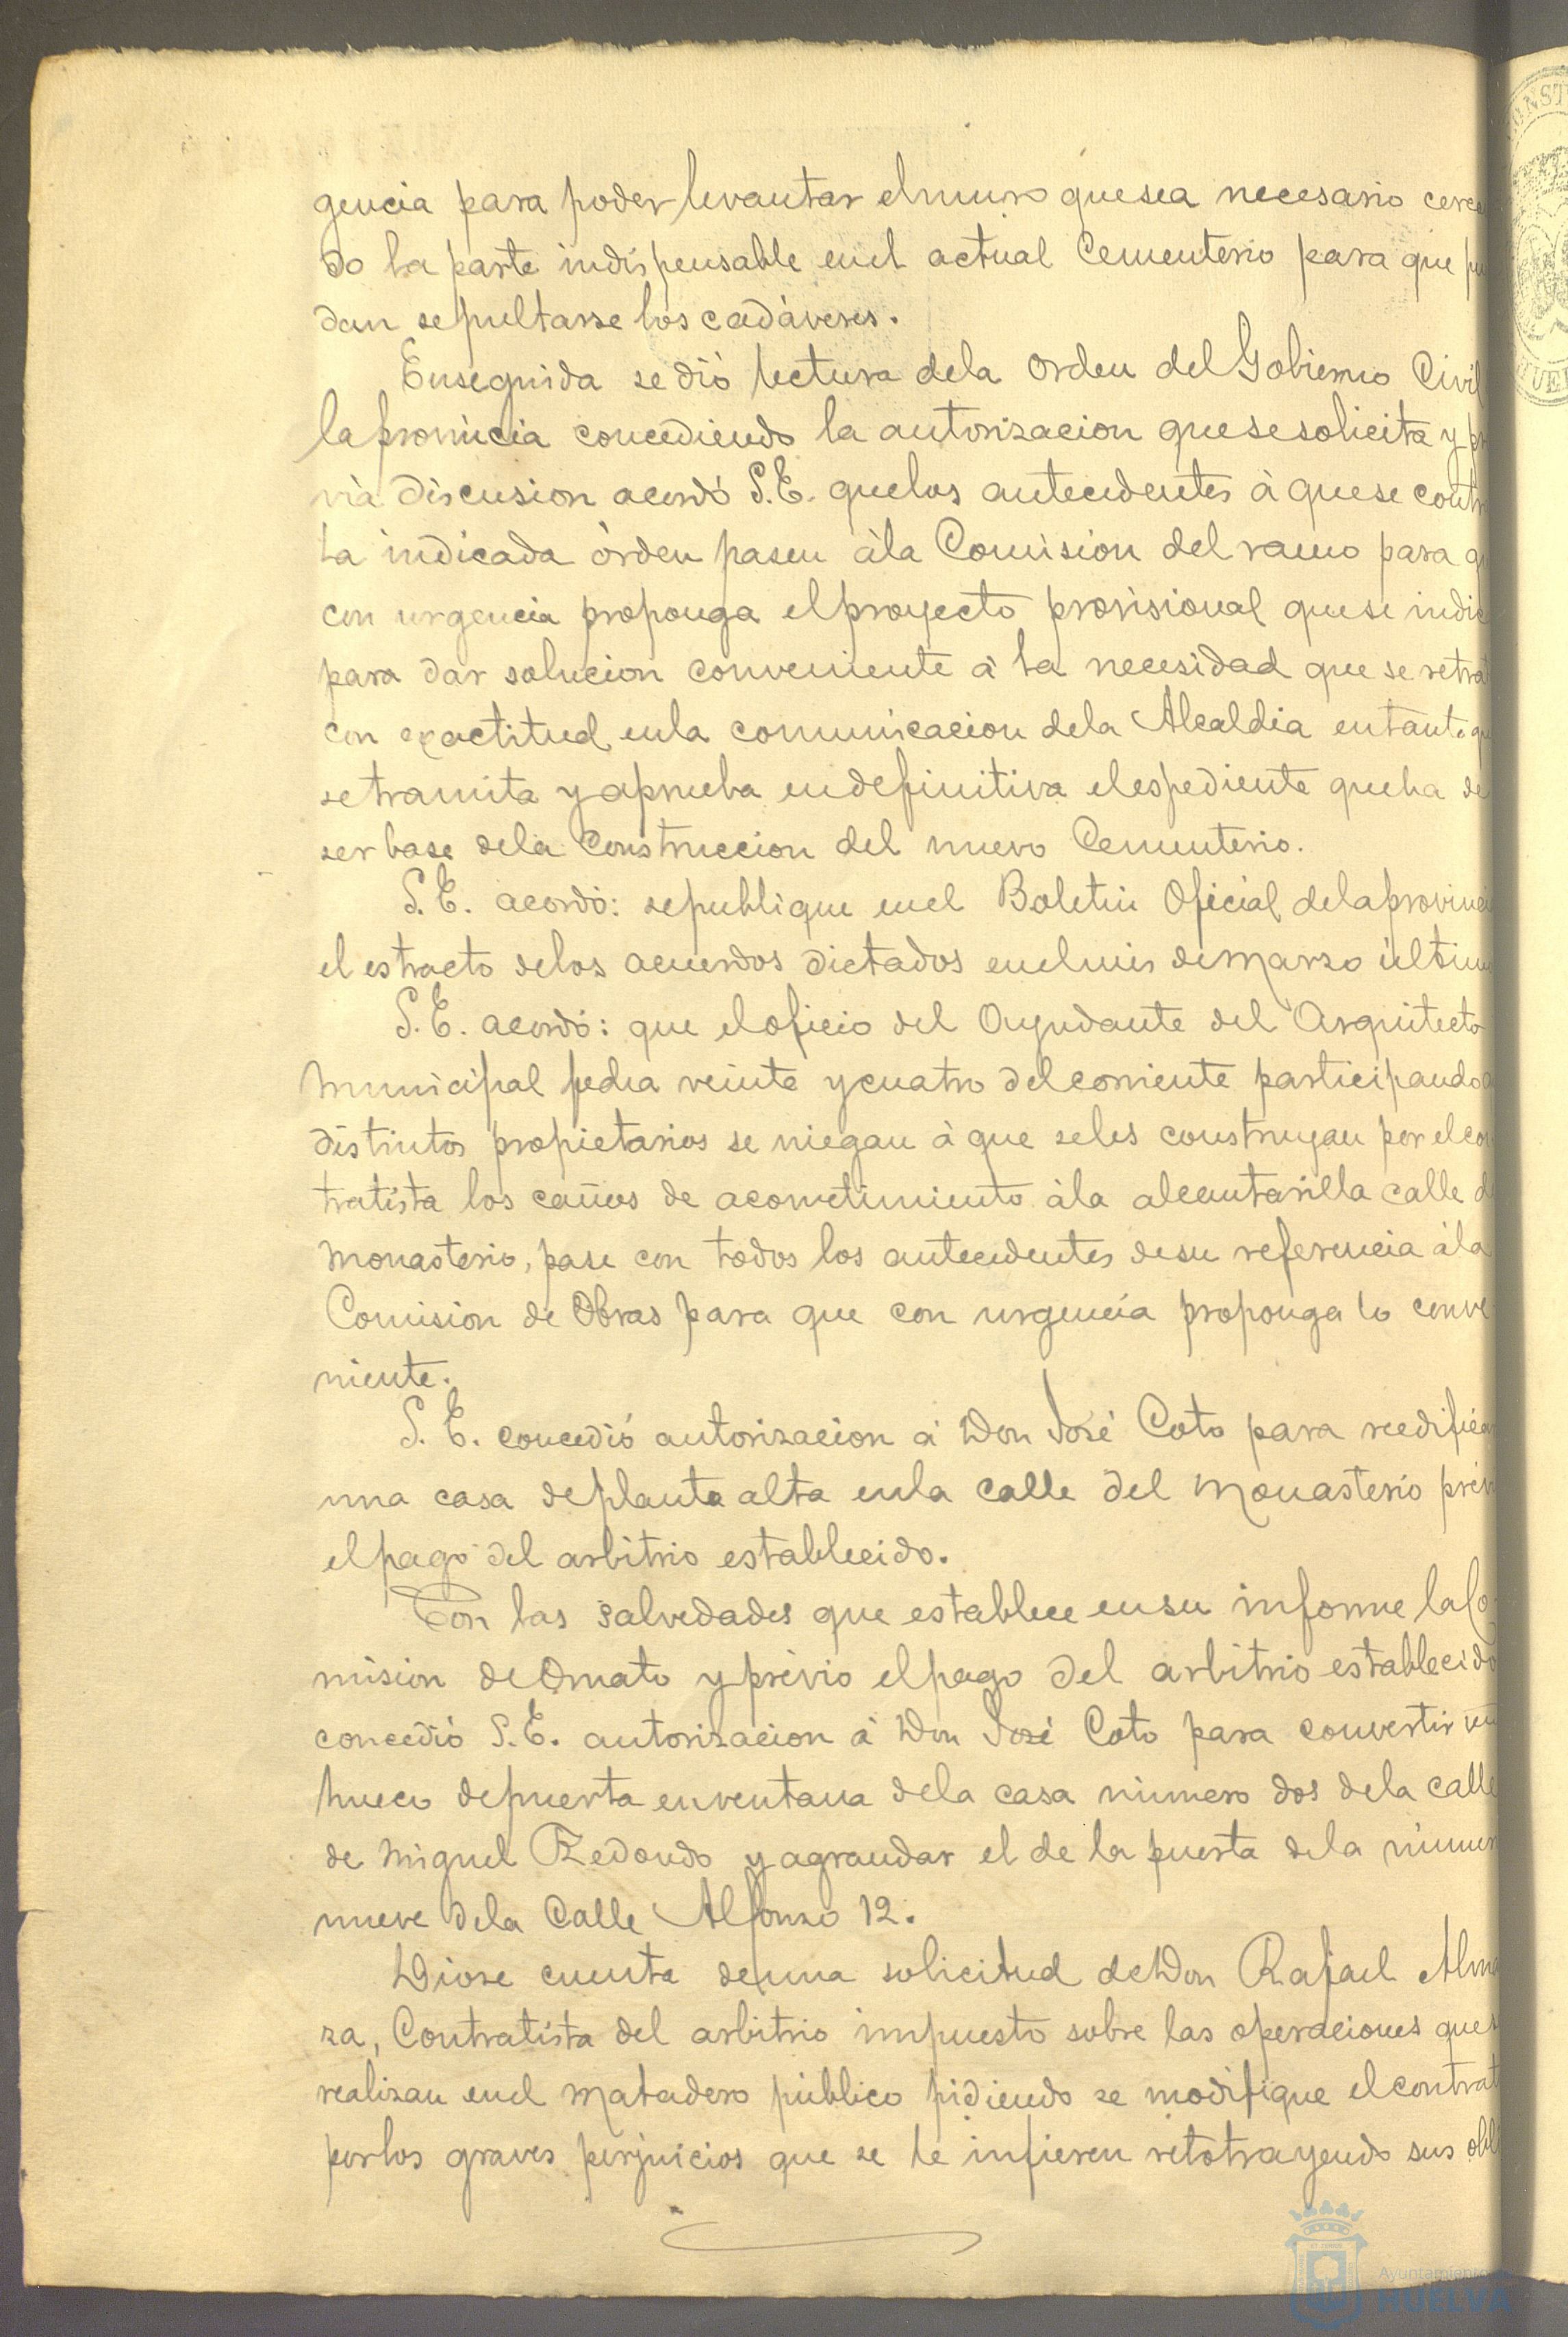 gencia para poder levantar el muro que sea necesario cerca
do la parte indispensable en el actual Cementerio para que pue
dan sepultarse los cadáveres.
Enseguida se dió lectura de la orden del Gobierno Civil
la provincia concediendo la autorizacion que se solicita y pr
via discusion acordó S.E. que los antecedentes à que se contr
la indicada órden pasen à la Comision del ramo para q
con urgencia proponga el proyecto provisional que se indic
para dar solucion conveniente à la necesidad que se retra
con exactitud en la comunicacion de la Alcaldia en tanto q
se tramita y aprueba en definitiva el espediente que ha de
ser base de la Construccion del nuevo Cementerio.
S.E. acordó: se publique en el Boletin Oficial de la provinci
el estracto de los acuerdos dictados en el mes de marzo últim
S.E. acordó: que el oficio del Ayudante del Arquitecto
Municipal fecha veinte y cuatro del corriente participando
distintos propietarios se niegan à que se les construyan por el con
tratista los caños de acometimiento à la alcantarilla calle d
Monasterio, pase con todos los antecedentes de su referencia à la
Comision de Obras para que con urgencia proponga lo conve
niente.
S.E. concedió autorizacion à Don José Coto para reedifica
una casa de planta alta en la calle del Monasterio prév
el pago del arbitrio establecido.
Con las salvedades que establece en su informe la Co
mision de Ornato y prévio el pago del arbitrio establecido
concedió S.E. autorizacion à Don José Coto para convertir un
hueco de puerta en ventana de la casa número dos de la calle
de Miguel Redondo y agrandar el de la puerta de la númer
nueve de la Calle Alfonso 12.
Diose cuenta de una solicitud de Don Rafael Alma
za, Contratista del arbitrio impuesto sobre las operaciones que s
realizan en el Matadero público pidiendo se modifique el contrat
por los graves perjuicios que se le infieren retotrayendo sus obl
Ayuntamiento
HUELVA